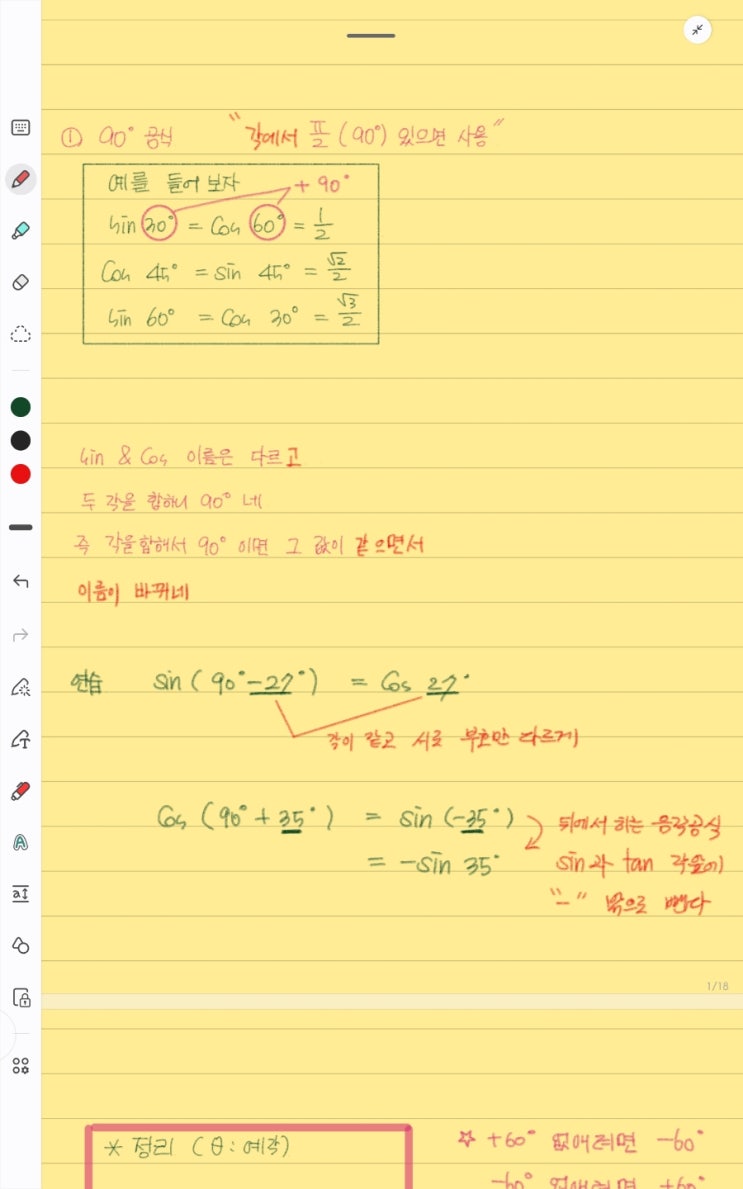 ① 90° 공식 "각에서 플(90°) 있으면 사용"
예를 들어 보자 + 90°
sin 30° = Cos 60° = 1/2
Cos 45° = sin 45° = √2/2
sin 60° = Cos 30° = √3/2
sin & Cos 이름은 다르고
두 각을 합하니 90° 네
즉 각을합해서 90° 이면 그 값이 같으면서
이름이 바뀌네
연습 sin(90°-27°) = Cos 27°
각이 같고 서로 부호만 다르게
Cos (90°+35°) = sin(-35°) 뒤에서 하는 음각공식
= -sin 35° sin과 tan 각들이
"-" 밖으로 뺀다
1/18
* 정리 (θ:예각) ☆ +60° 없애려면 -60°
-60° 없애려면 +60°